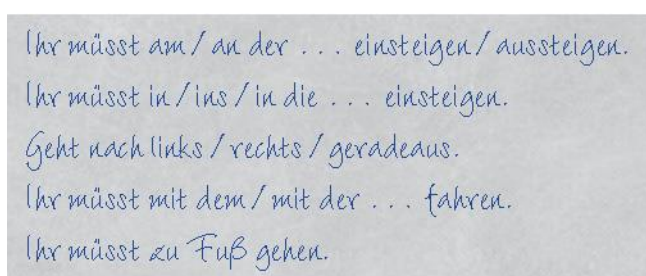 Ihr müsst am / an der . . . einsteigen / aussteigen.
Ihr müsst in / ins / in die . . . einsteigen.
Geht nach links / rechts / geradeaus.
Ihr müsst mit dem / mit der . . . fahren.
Ihr müsst zu Fuß gehen.